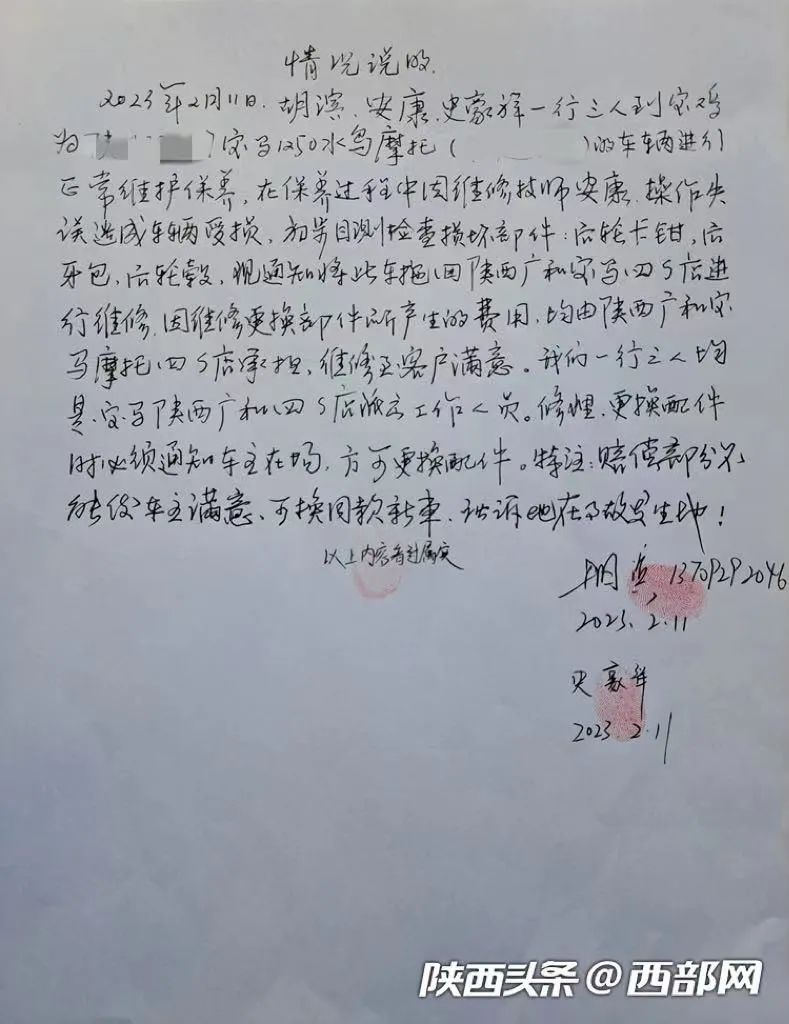 情况说明
2023年2月11日.胡滨、安康、史豪祥一行三人到宝鸡
为 )宝马1250水鸟摩托( )的车辆进行
正常维护保养，在保养过程中因维修技师安康、操作失
误造成车辆受损，初步目测检查损坏部件：后轮卡钳，后
牙包，后轮毂，现通知将此车拖回陕西广和宝马四S店进
行维修.因维修更换部件所产生的费用，均由陕西广和宝
马摩托四S店承担，维修至客户满意。我们一行三人均
是宝马陕西广和四S店派出工作人员。修理、更换配件
时必须通知车主在场，方可更换配件。特注：赔偿部分不
能使车主满意、可换同款新車、诉地在事故发生地！
以上内容看过属实
胡滨 13709292046
2023.2.11
史豪祥
2023.2.11
陕西头条@西部网